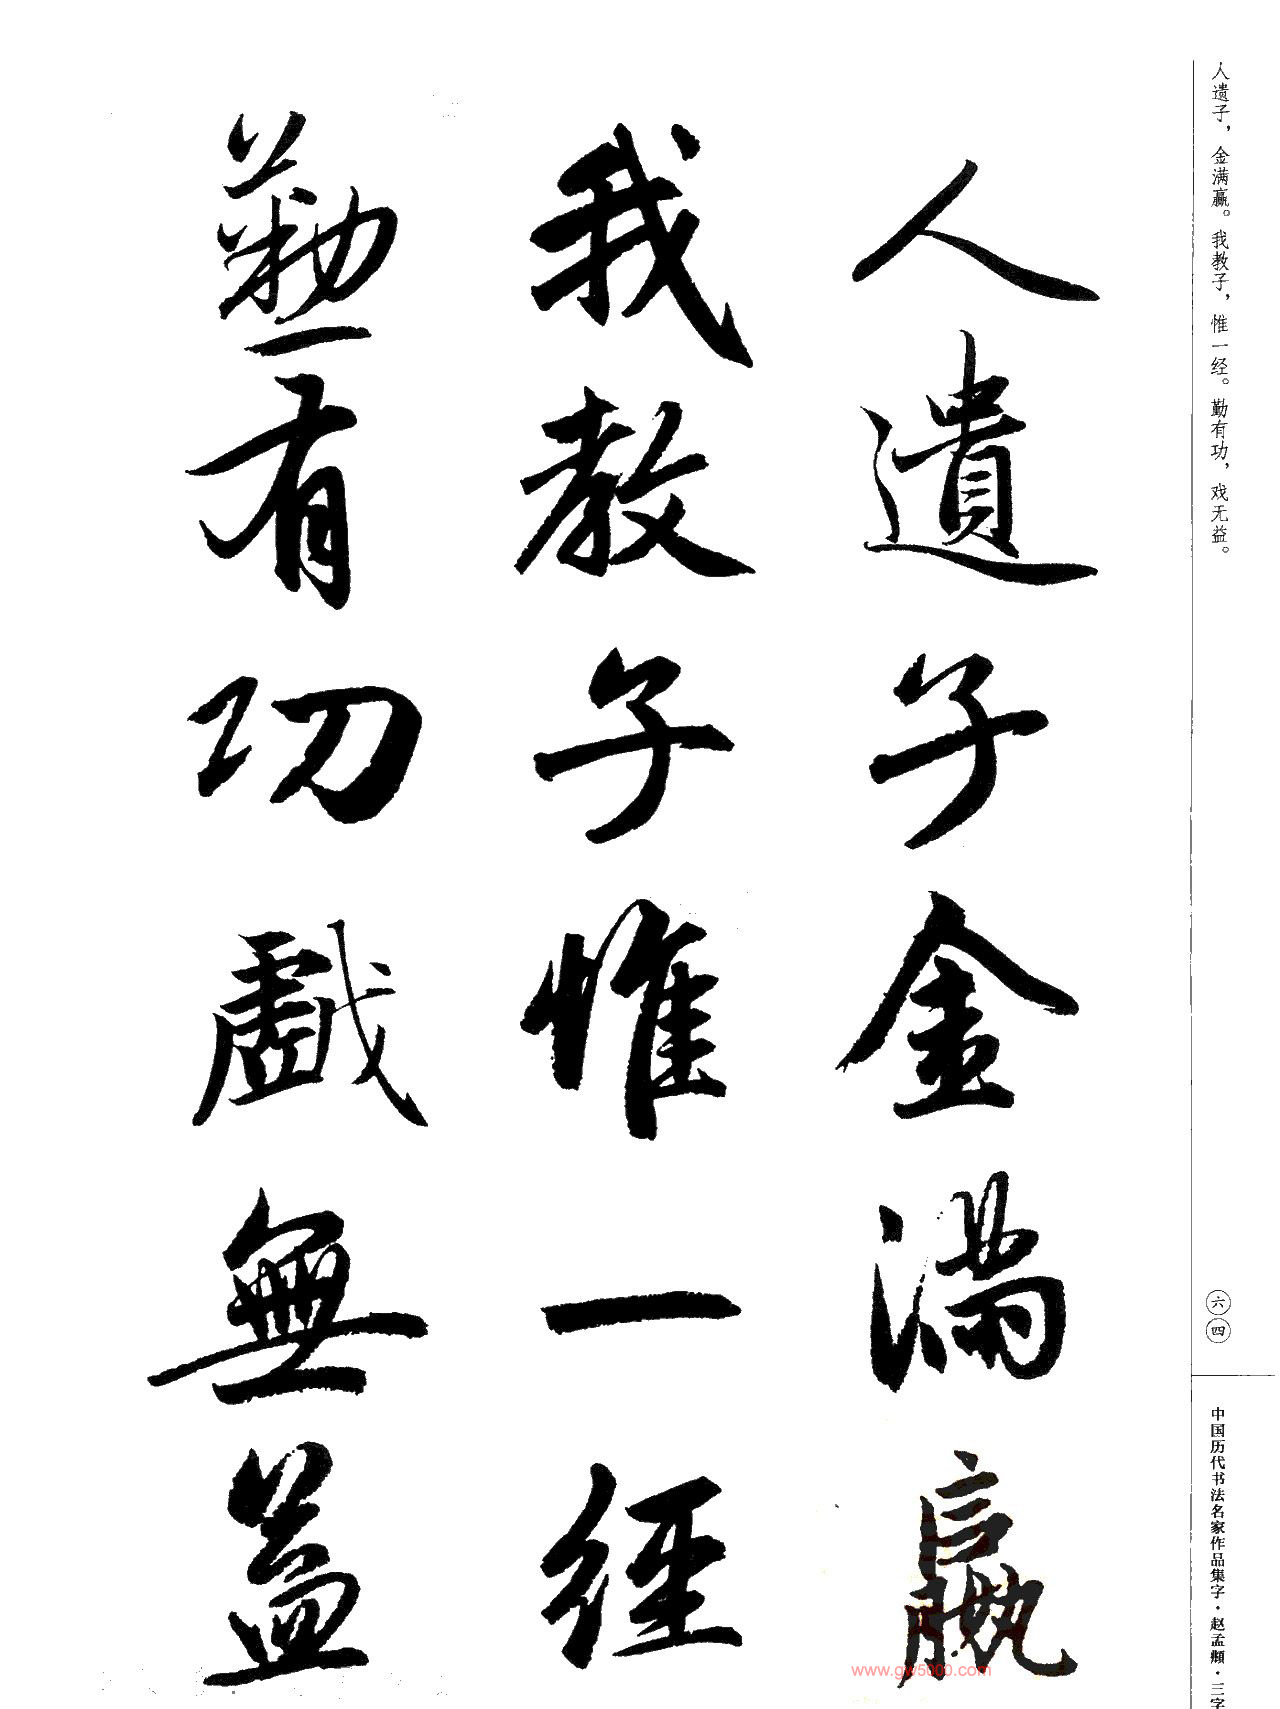 人遗子，金满赢。我教子，惟一经。勤有功，戏无益。
六四
中国历代书法名家作品集字·赵孟頫·三字
人遺子金滿嬴
我教子惟一經
懃有功戲無益
www.gw5000.com